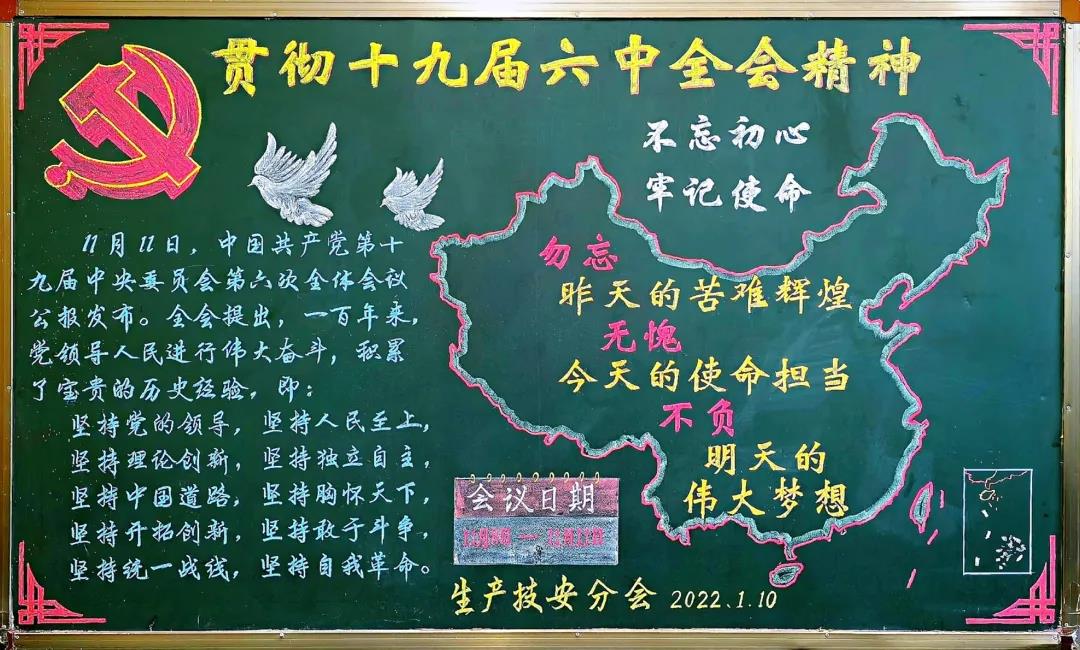 贯彻十九届六中全会精神
不忘初心
牢记使命
11月11日，中国共产党第十
九届中央委员会第六次全体会议
公报发布。全会提出，一百年来，
党领导人民进行伟大奋斗，积累
了宝贵的历史经验，即：
坚持党的领导，坚持人民至上，
坚持理论创新，坚持独立自主，
坚持中国道路，坚持胸怀天下，
坚持开拓创新，坚持敢于斗争，
坚持统一战线，坚持自我革命。
勿忘
昨天的苦难辉煌
无愧
今天的使命担当
不负
明天的
伟大梦想
会议日期
生产技安分会 2022.1.10